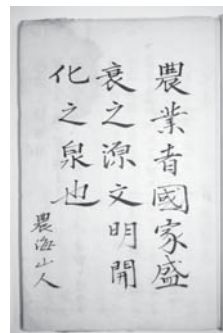 農業者國家盛
衰之源文明開
化之泉也
農海山人